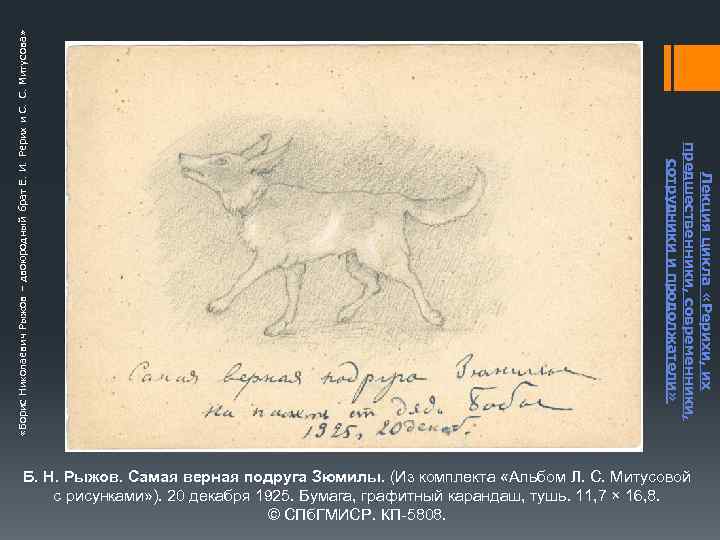 «Борис Николаевич Рыжов – двоюродный брат Е. И. Рерих и С. С. Митусова»
Лекция цикла «Рерихи, их
предшественники, современники,
сотрудники и продолжатели».
Самая верная подруга Зюмилы
На память от дяди Бобы
1925, 20 декаб.
Б. Н. Рыжов. Самая верная подруга Зюмилы. (Из комплекта «Альбом Л. С. Митусовой
с рисунками»). 20 декабря 1925. Бумага, графитный карандаш, тушь. 11,7 × 16,8.
© СПбГМИСР. КП-5808.